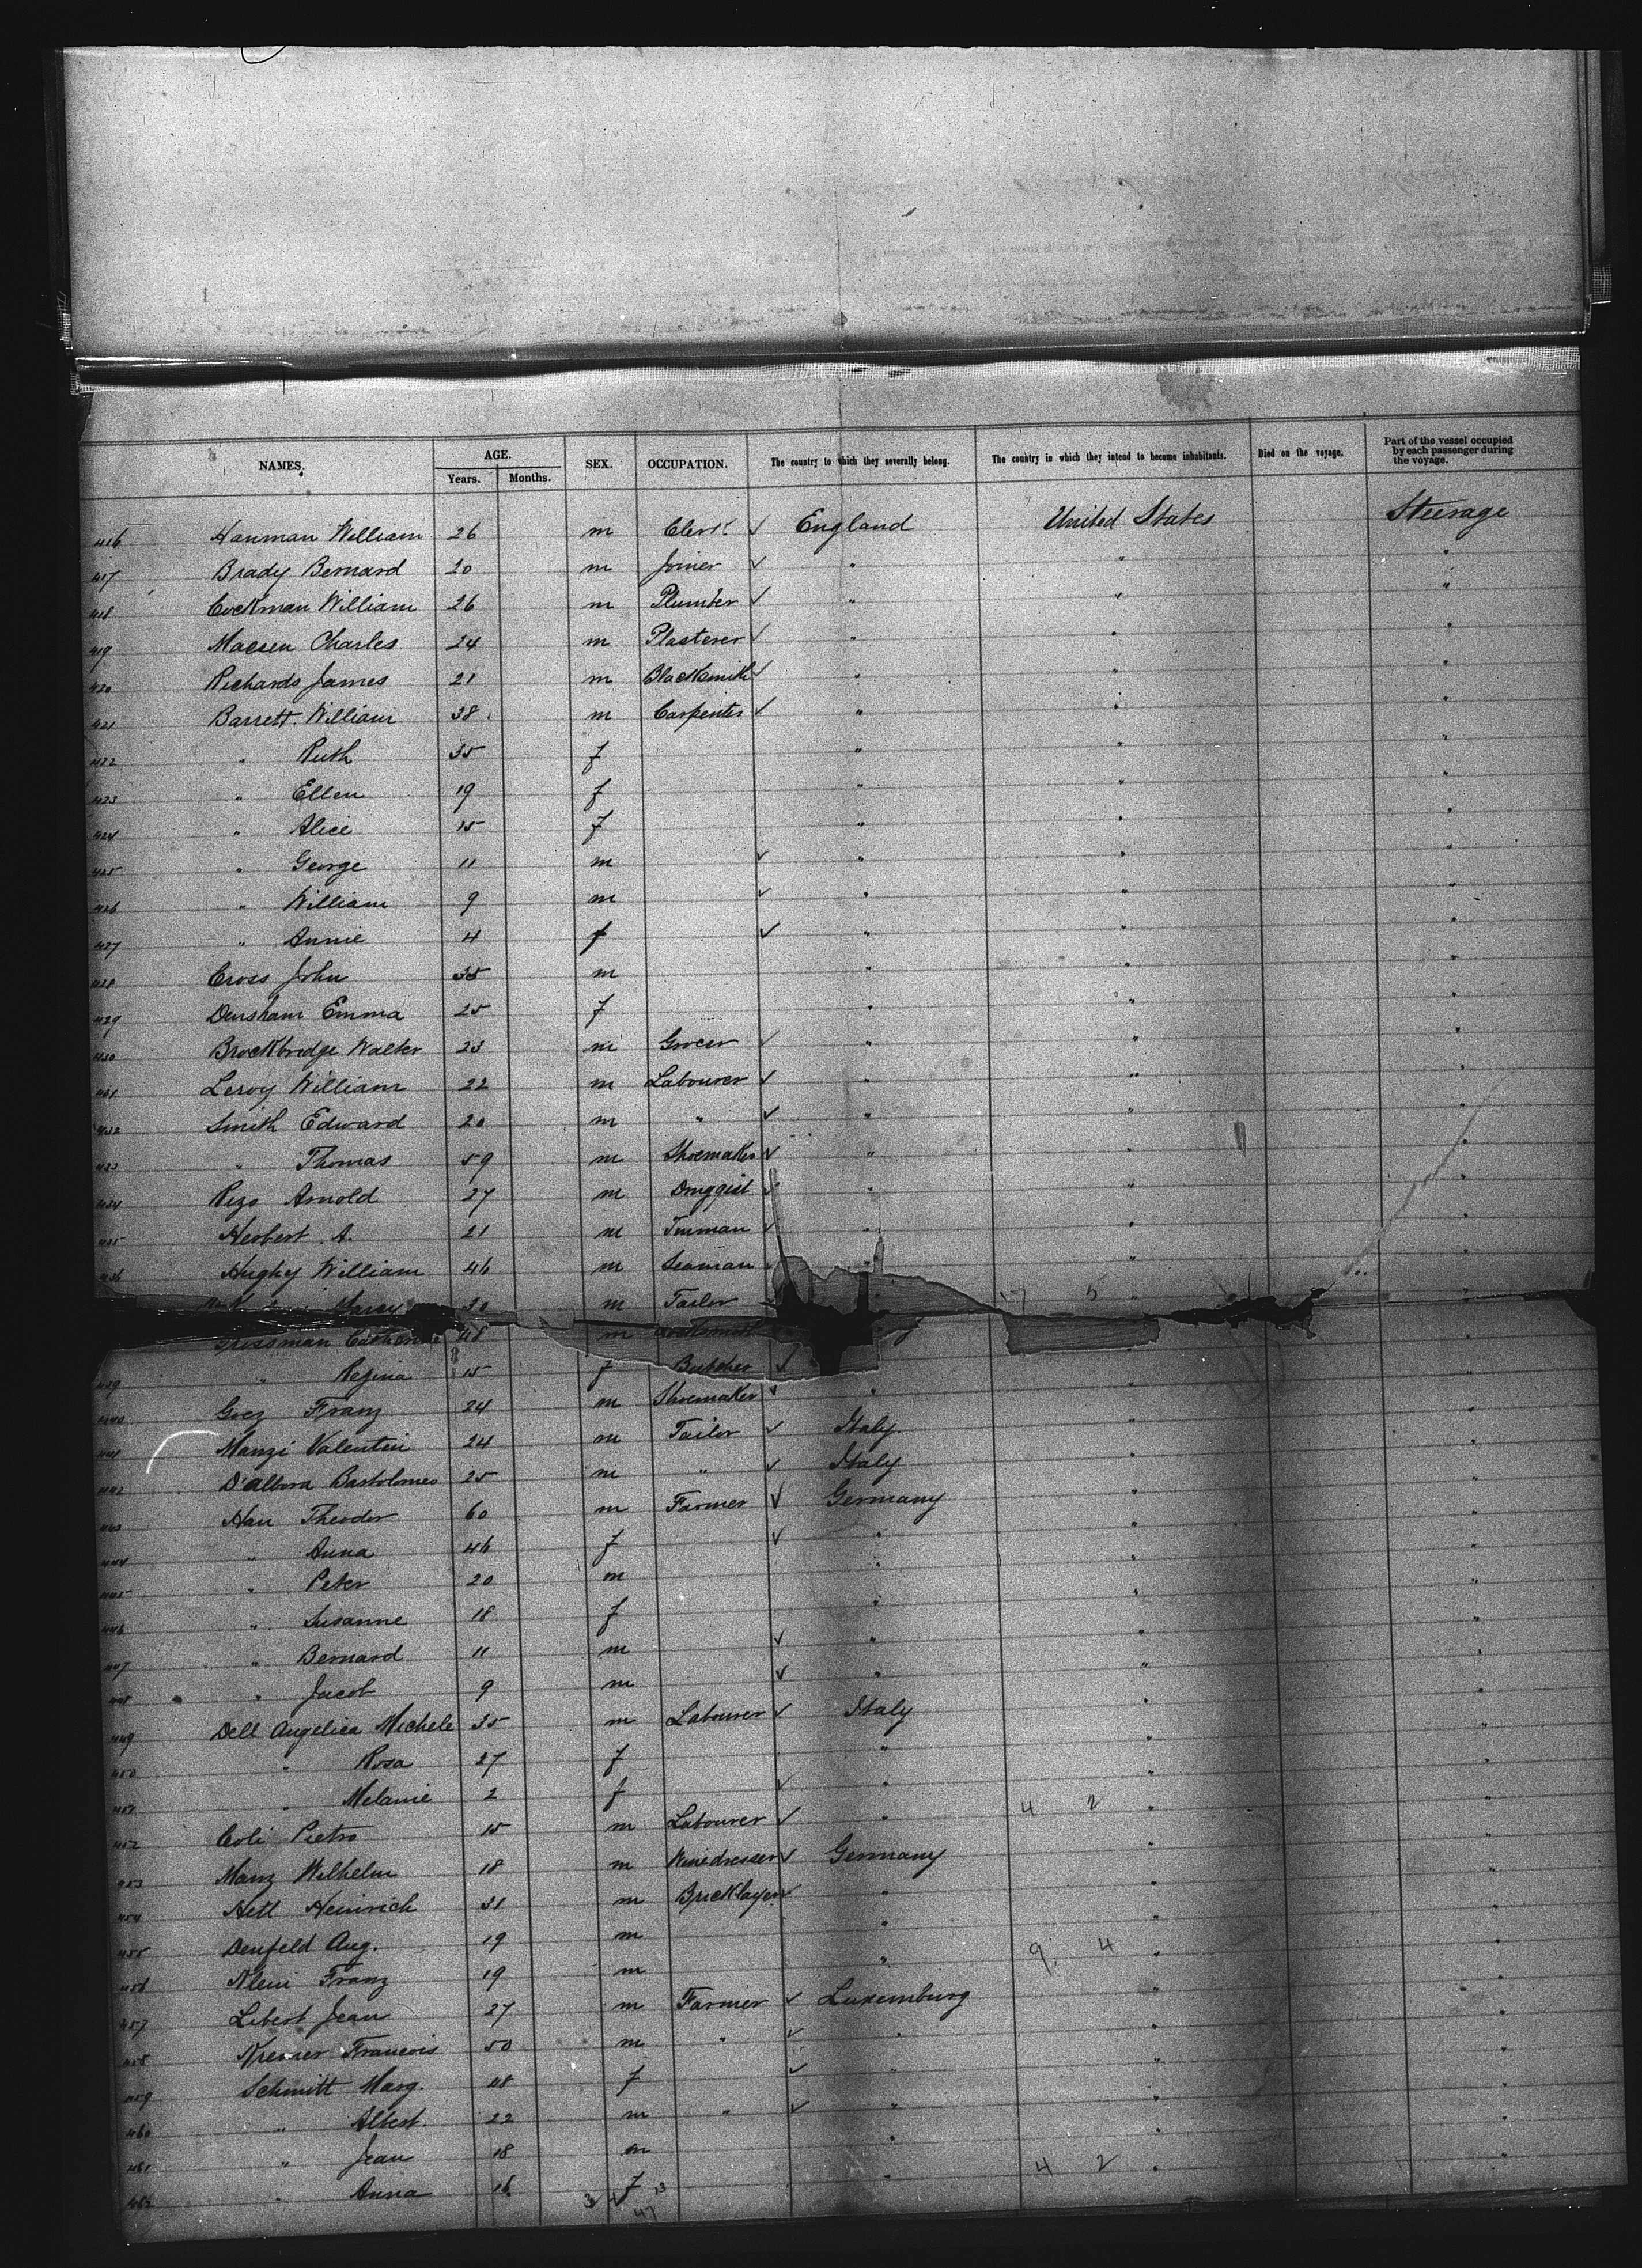 NAMES. AGE. SEX. OCCUPATION. The country to which they severally belong. The country in which they intend to become inhabitants. Died on the voyage. Part of the vessel occupied by each passenger during the voyage.
Years. Months.
416 Hanman William 26 m Clerk ✓ England United States Steerage
417 Brady Bernard 20 m Joiner ✓ " " "
418 Cockman William 26 m Plumber ✓ " " "
419 Maesen Charles 24 m Plasterer ✓ " " "
420 Richards James 21 m Blacksmith ✓ " " "
421 Barrett William 38 m Carpenter ✓ " " "
422 " Ruth 35 f " " "
423 " Ellen 19 f " " "
424 " Alice 15 f " " "
425 " George 11 m ✓ " " "
426 " William 9 m ✓ " " "
427 " Annie 4 f ✓ " " "
428 Cross John 35 m " " "
429 Densham Emma 25 f " " "
430 Brockbridge Walter 23 m Grocer ✓ " " "
431 Leroy William 22 m Labourer ✓ " " "
432 Smith Edward 20 m " ✓ " " "
433 " Thomas 59 m Shoemaker ✓ " " "
434 Rizo Arnold 27 m Druggist ✓ " " "
435 Herbert A. 21 m Tinman ✓ " " "
436 Hughy William 46 m Seaman " " "
30 m Tailor 17 5 " "
Grossman Catharine 48 m "
439 " Regina 15 f Butcher ✓ " "
440 Goez Franz 24 m Shoemaker ✓ " " "
441 Manzi Valentin 24 m Tailor ✓ Italy " "
442 D'Albora Bartolomeo 25 m " ✓ Italy " "
443 Hau Theodor 60 m Farmer ✓ Germany " "
444 " Anna 46 f ✓ " " "
445 " Peter 20 m " " "
446 " Susanne 18 f " " "
447 " Bernard 11 m ✓ " " "
448 " Jacob 9 m ✓ " " "
449 Dell Angelica Michele 35 m Labourer ✓ Italy " "
450 " Rosa 27 f " " "
451 " Melanie 2 f ✓ " " "
452 Coli Pietro 15 m Labourer ✓ " 4 2 " "
453 Manz Wilhelm 18 m Winedresser ✓ Germany " "
454 Hett Heinrich 31 m Bricklayer ✓ " " "
455 Denfeld Aug. 19 m " " "
456 Klein Franz 19 m " 9 4 " "
457 Libert Jean 27 m Farmer ✓ Luxemburg " "
458 Kremer Francois 50 m " ✓ " " "
459 Schmitt Marg. 48 f ✓ " " "
460 " Albert 22 m " ✓ " " "
461 " Jean 18 m " " "
462 " Anna 16 f " 4 2 " "
47